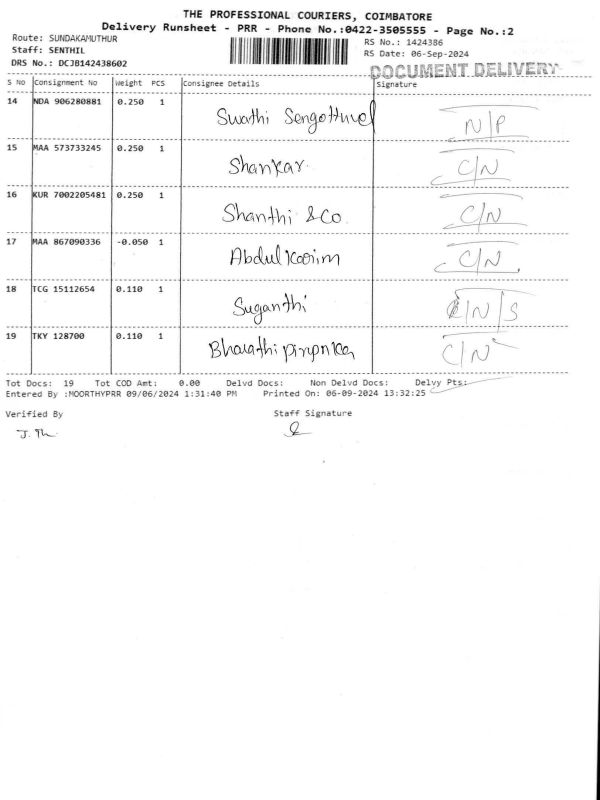 THE PROFESSIONAL COURIERS, COIMBATORE
Delivery Runsheet - PRR - Phone No.:0422-3505555 - Page No.:2
Route: SUNDAKAMUTHUR
RS No.: 1424386
Staff: SENTHIL
RS Date: 06-Sep-2024
DRS No.: DCJB142438602
DOCUMENT DELIVERY
S No Consignment No Weight PCS Consignee Details Signature
14 NDA 906280881 0.250 1 Swathi Sengottuvel N/P
15 MAA 573733245 0.250 1 Shankar C/N
16 KUR 7002205481 0.250 1 Shanthi & Co C/N
17 MAA 867090336 -0.050 1 Abdul Kareim C/N
18 TCG 15112654 0.110 1 Suganthi C/N/S
19 TKY 128700 0.110 1 Bharathi C/N
Tot Docs: 19 Tot COD Amt: 0.00 Delvd Docs: Non Delvd Docs: Delvy Pts:
Entered By :MOORTHYPRR 09/06/2024 1:31:40 PM Printed On: 06-09-2024 13:32:25
Verified By Staff Signature